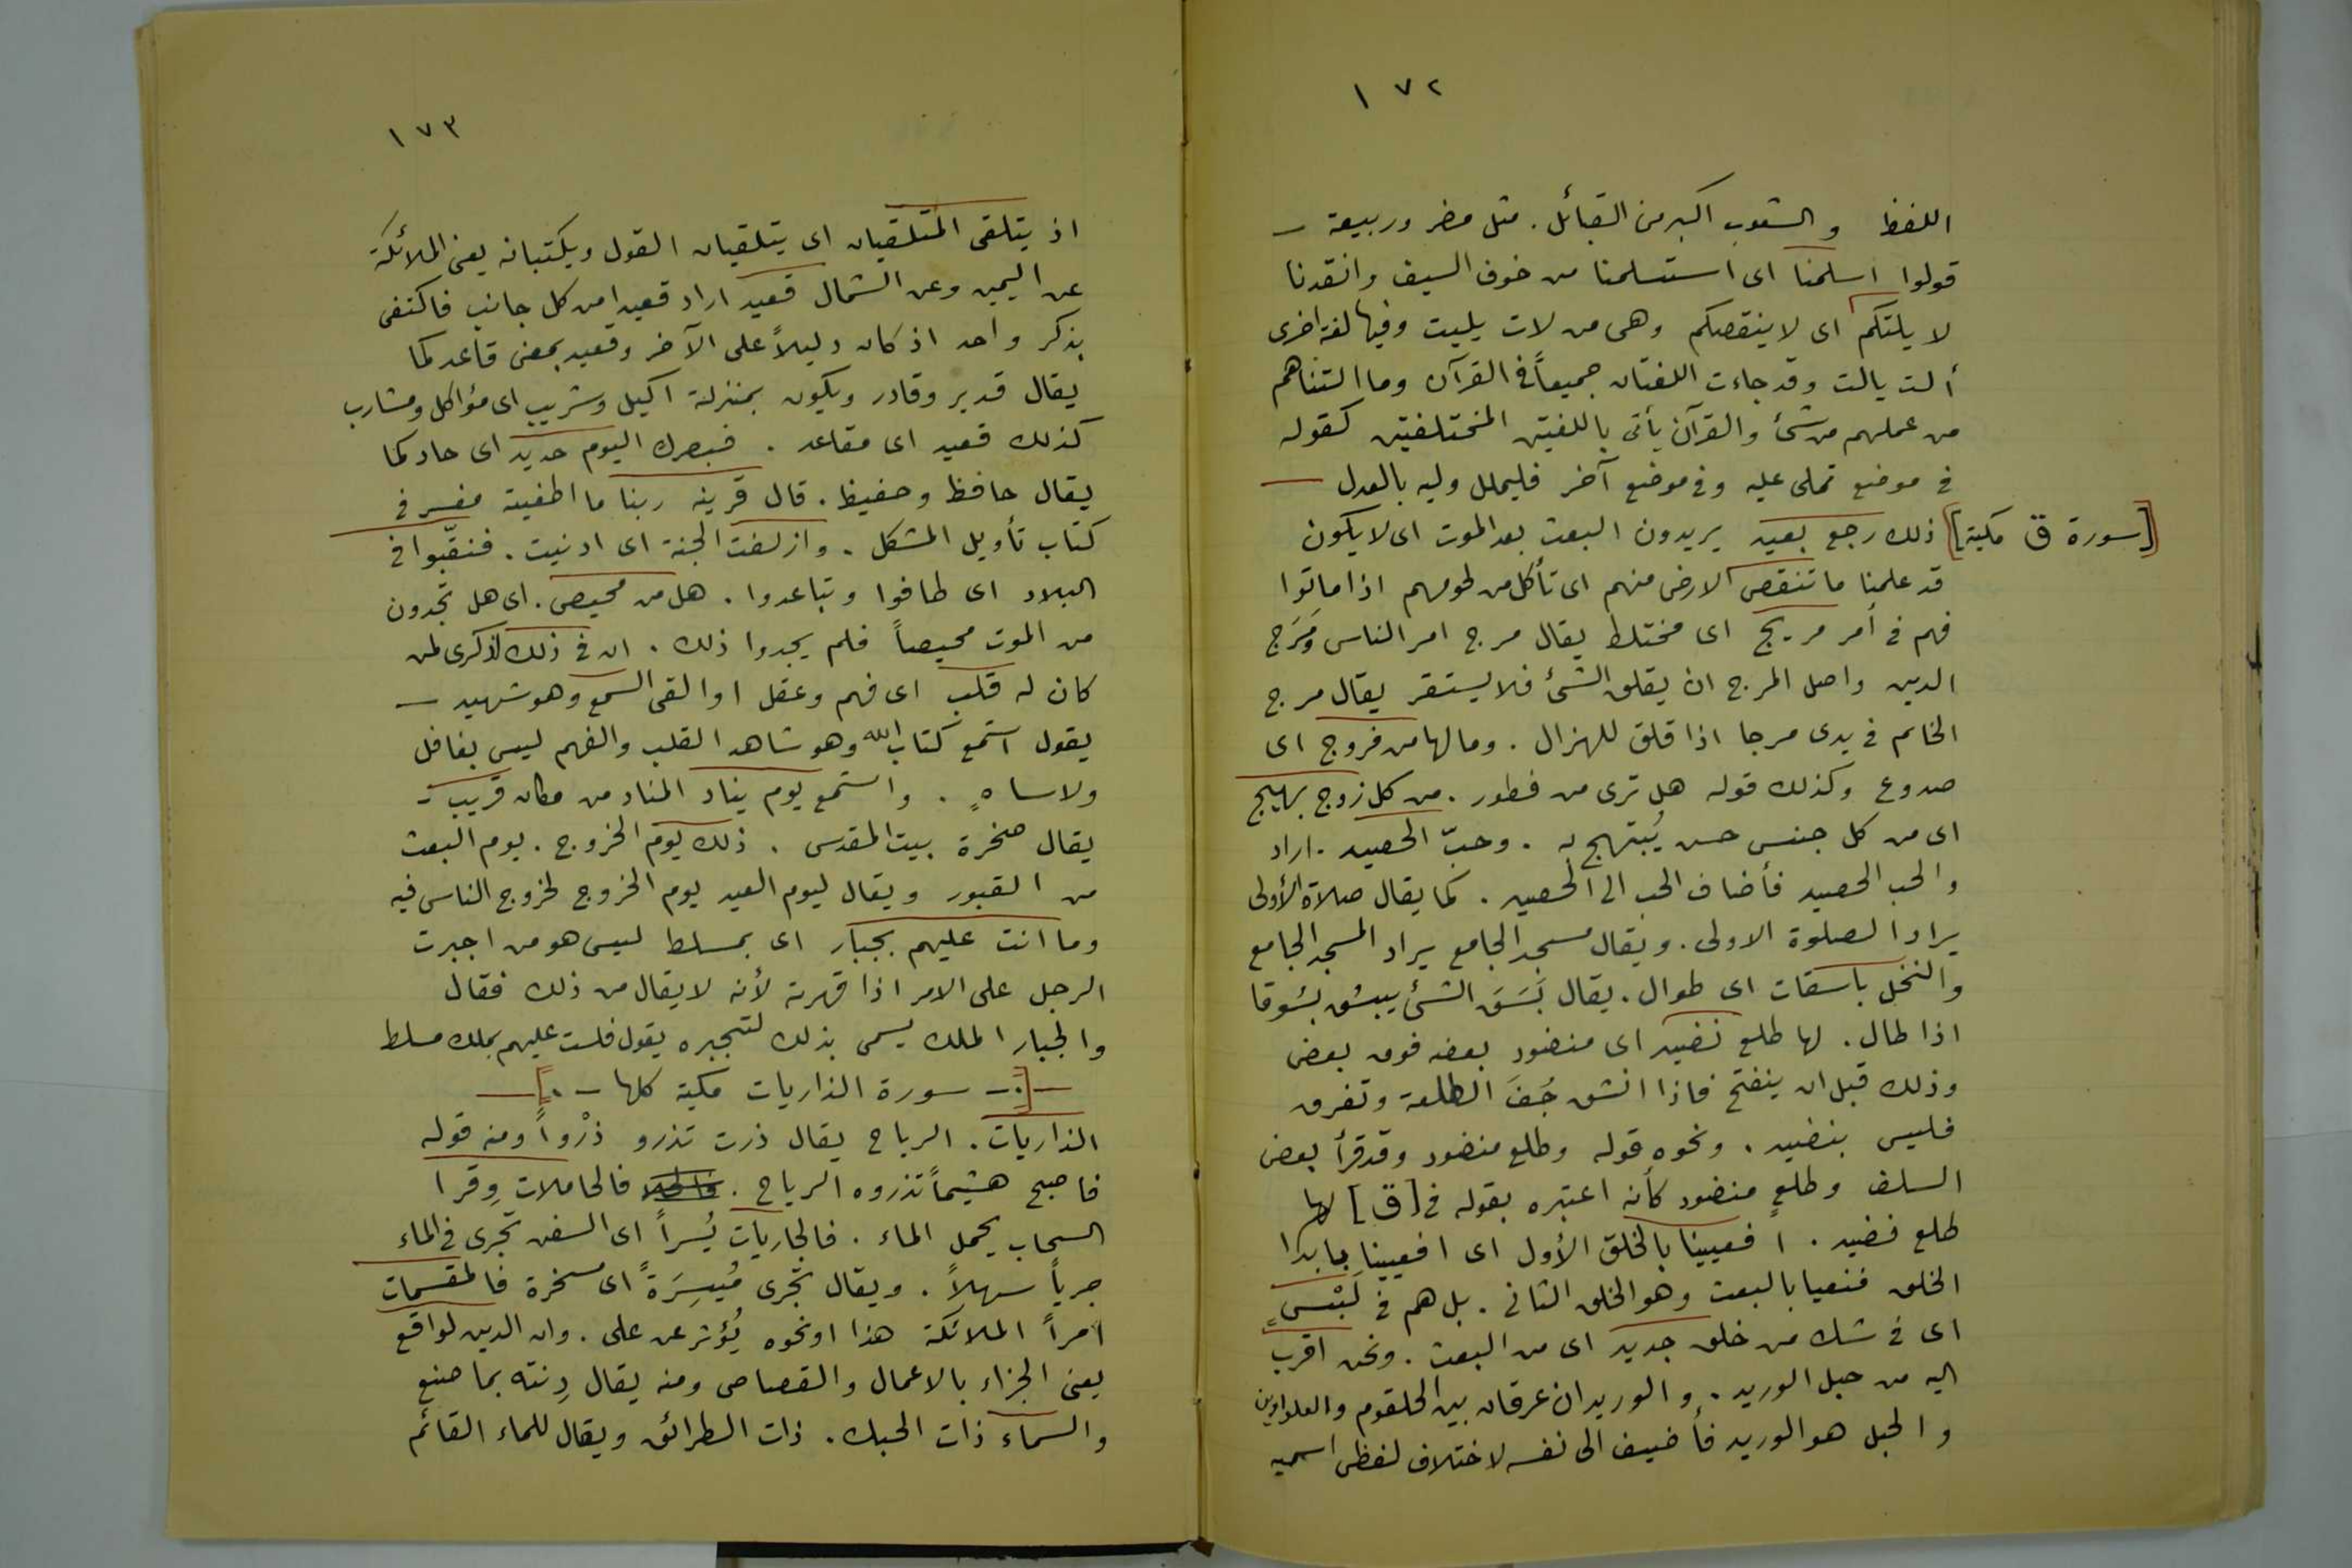 ١٧٢
اللفظ والشعوب اكبر من القبائل . مثل مضر وربيعة –
قولوا اسلمنا اى استسلمنا من خوف السيف وانقدنا
لا يلتكم اى لا ينقصكم وهى من لات يليت وفيها لغة اخرى
ألت يالت وقد جاءت اللغتان جميعاً فى القرآن وما التناهم
من عملهم من شئ والقرآن يأتى باللغتين المختلفتين كقوله
فى موضع تملى عليه وفى موضع آخر فليملل وليه بالعدل –
[سورة ق مكية] ذلك رجع بعيد يريدون البعث بعد الموت اى لا يكون
قد علمنا ما تنقص الارض منهم اى تأكل من لحومهم اذا ماتوا
فهم فى أمر مريج اى مختلط يقال مرج امر الناس وَمَرَج
الدين واصل المرج ان يقلق الشئ فلا يستقر يقال مرج
الخاتم فى يدى مرجا اذا قلق للهزال . وما لها من فروج اى
صدوع وكذلك قوله هل ترى من فطور . من كل زوج بهيج
اى من كل جنس حسن يُبتهج به . وحبّ الحصيد . اراد
والحب الحصيد فأضاف الحب الى الحصيد . كما يقال صلاة الأولى
يراد الصلوة الاولى . ويقال مسجد الجامع يراد المسجد الجامع
والنخل باسقات اى طوال . يقال بَسَقَ الشئ يبسُق بسُوقا
اذا طال . لها طلع نضيد اى منضود بعضه فوق بعض
وذلك قبل ان ينفتح فاذا انشق جُفّ الطلعة وتفرق
فليس بنضيد . ونحوه قوله وطلع منضود وقد قرأ بعض
السلف وطلعٍ منضود كأنه اعتبره بقوله فى [ق] لها
طلع نضيد . افعيينا بالخلق الأول اى افعيينا بابدا
الخلق فنعيا بالبعث وهو الخلق الثانى . بل هم فى لَبْسٍ
اى فى شك من خلق جديد اى من البعث . ونحن اقرب
اليه من حبل الوريد . والوريدان عرقان بين الحلقوم والعلباوين
والحبل هو الوريد فأضيف الى نفسه لاختلاف لفظى اسميه
١٧٣
اذ يتلقى المتلقيان اى يتلقيان القول ويكتبانه يعنى الملائكة
عن اليمين وعن الشمال قعيد اراد قعيدا من كل جانب فاكتفى
بذكر واحد اذ كان دليلاً على الآخر وقعيد بمعنى قاعد كما
يقال قدير وقادر ويكون بمنزلة اكيل وشريب اى مؤاكل ومشارب
كذلك قعيد اى مقاعد . فبصرك اليوم حديد اى حاد كما
يقال حافظ وحفيظ . قال قرينه ربنا ما اطغيته مفسر فى
كتاب تأويل المشكل . وازلفت الجنة اى ادنيت . فنقّبوا فى
البلاد اى طافوا وتباعدوا . هل من محيص . اى هل تجدون
من الموت محيصاً فلم يجدوا ذلك . ان فى ذلك لذكرى لمن
كان له قلب اى فهم وعقل او القى السمع وهو شهيد –
يقول استمع كتاب الله وهو شاهد القلب والفهم ليس بغافل
ولا ساهٍ . واستمع يوم يناد المناد من مكان قريب –
يقال صخرة بيت المقدس . ذلك يوم الخروج . يوم البعث
من القبور ويقال ليوم العيد يوم الخروج لخروج الناس فيه
وما انت عليهم بجبار اى بمسلط ليس هو من اجبرت
الرجل على الامر اذا قهرته لأنه لا يقال من ذلك فقال
والجبار الملك يسمى بذلك لتجبره يقول فلست عليهم بملك مسلط
–[.– سورة الذاريات مكية كلها –.]–
الذاريات . الرياح يقال ذرت تذرو ذرْواً ومنه قوله
فاصبح هشيماً تذروه الرياح . فالحاملات وِقرا
السحاب يحمل الماء . فالجاريات يُسراً اى السفن تجرى فى الماء
جرياً سهلاً . ويقال تجرى مُيسرَةً اى مسخرة فالمقسمات
امراً الملائكة هذا او نحوه يُؤثر عن على . وان الدين لواقع
يعنى الجزاء بالاعمال والقصاص ومنه يقال دِنته بما صنع
والسماء ذات الحبك . ذات الطرائق ويقال للماء القائم